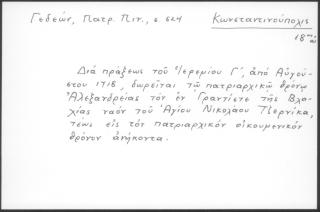 Γεδεών, Πατρ. Πιν., σ 624 Κωνσταντινούπολις
18ος αἰ
Διά πράξεως τοῦ Ἱερεμίου Γ΄, ἀπό Αὐγού-
στου 1718, δωρεῖται τῷ πατριαρχικῷ θρόνῳ
Ἀλεξανδρείας τόν ἐν Γραντίστε τῆς Βλα-
χίας ναόν τοῦ Ἁγίου Νικολάου Τζερνίκα,
τέως εἰς τόν πατριαρχικόν οἰκουμενικόν
θρόνον ἀνήκοντα.